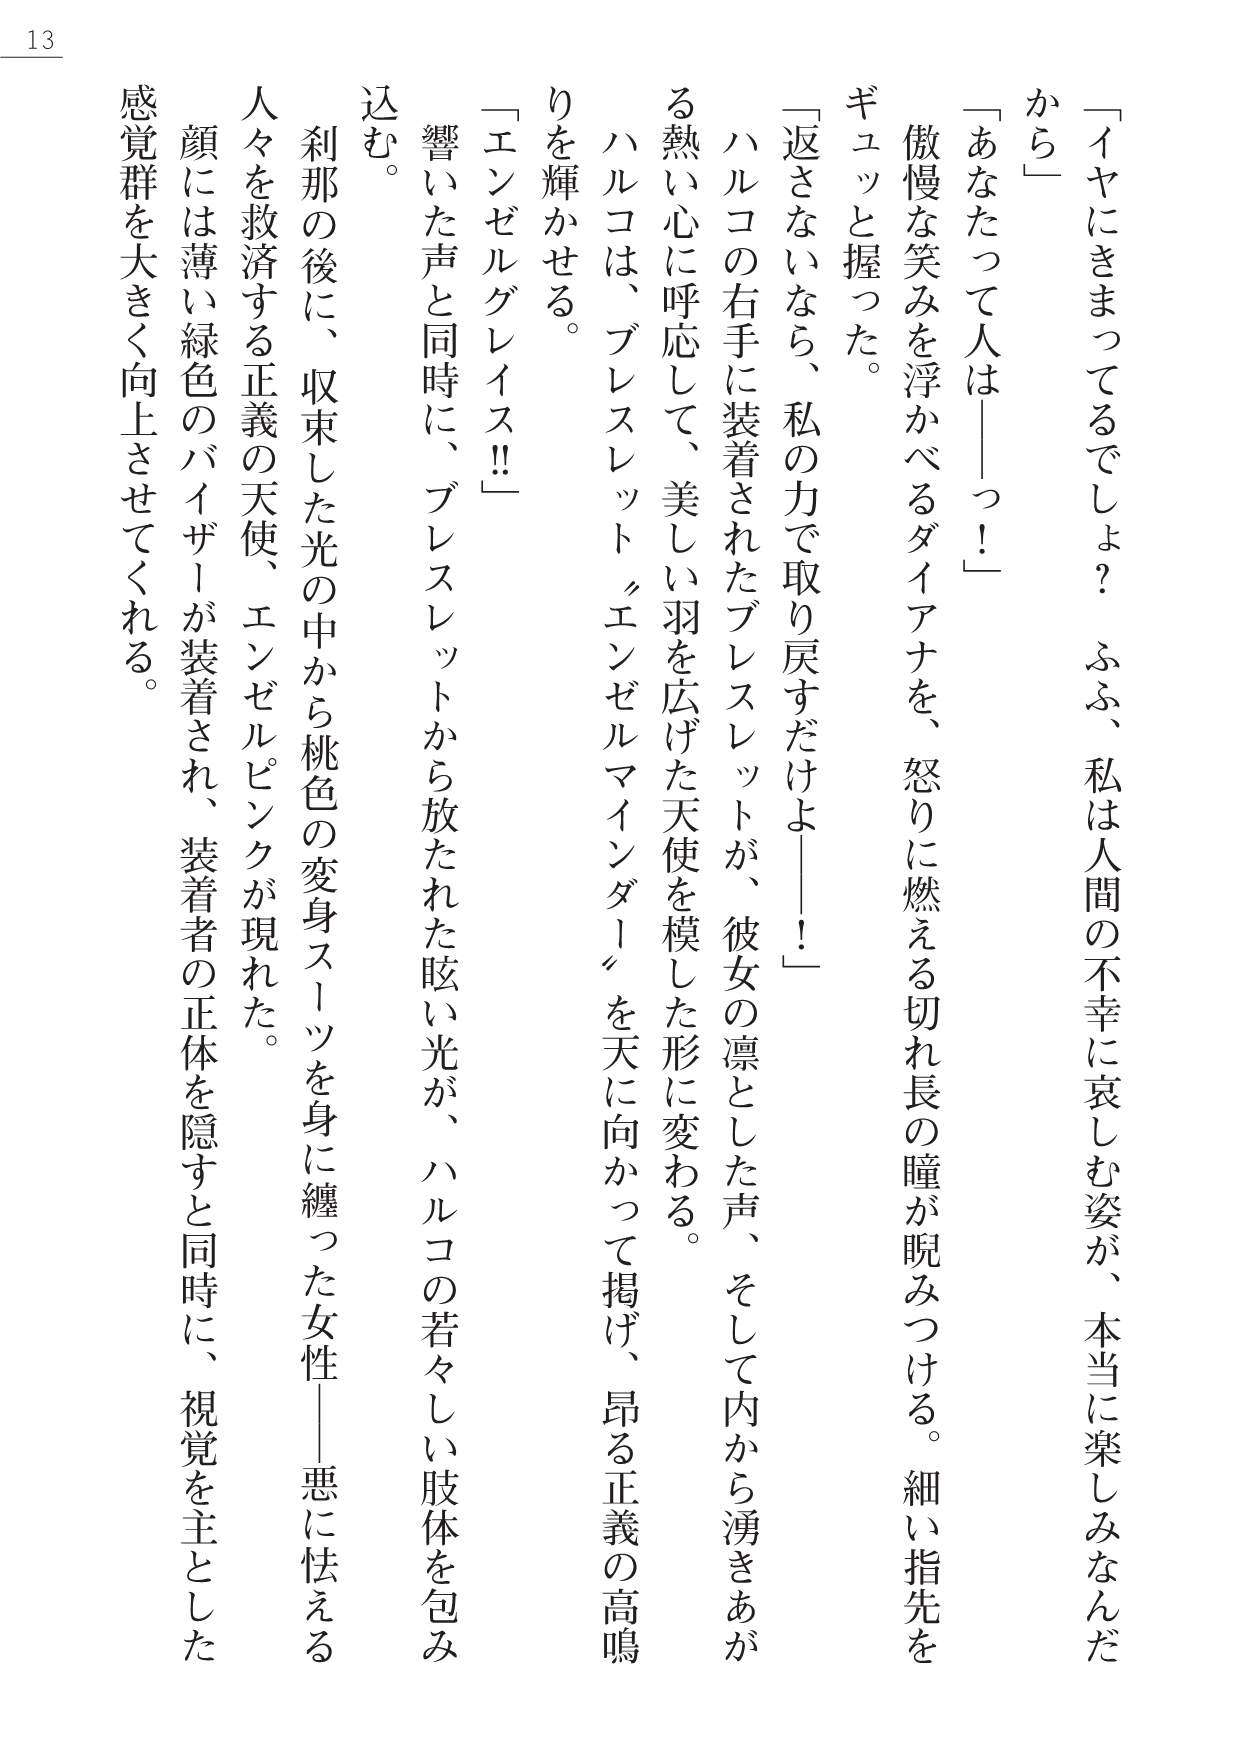 13
「イヤにきまってるでしょ？　ふふ、私は人間の不幸に哀しむ姿が、本当に楽しみなんだ
から」
「あなたって人は――っ！」
　傲慢な笑みを浮かべるダイアナを、怒りに燃える切れ長の瞳が睨みつける。細い指先を
ギュッと握った。
「返さないなら、私の力で取り戻すだけよ――！」
　ハルコの右手に装着されたブレスレットが、彼女の凛とした声、そして内から湧きあが
る熱い心に呼応して、美しい羽を広げた天使を模した形に変わる。
　ハルコは、ブレスレット〝エンゼルマインダー〟を天に向かって掲げ、昂る正義の高鳴
りを輝かせる。
「エンゼルグレイス‼」
　響いた声と同時に、ブレスレットから放たれた眩い光が、ハルコの若々しい肢体を包み
込む。
　刹那の後に、収束した光の中から桃色の変身スーツを身に纏った女性――悪に怯える
人々を救済する正義の天使、エンゼルピンクが現れた。
　顔には薄い緑色のバイザーが装着され、装着者の正体を隠すと同時に、視覚を主とした
感覚群を大きく向上させてくれる。